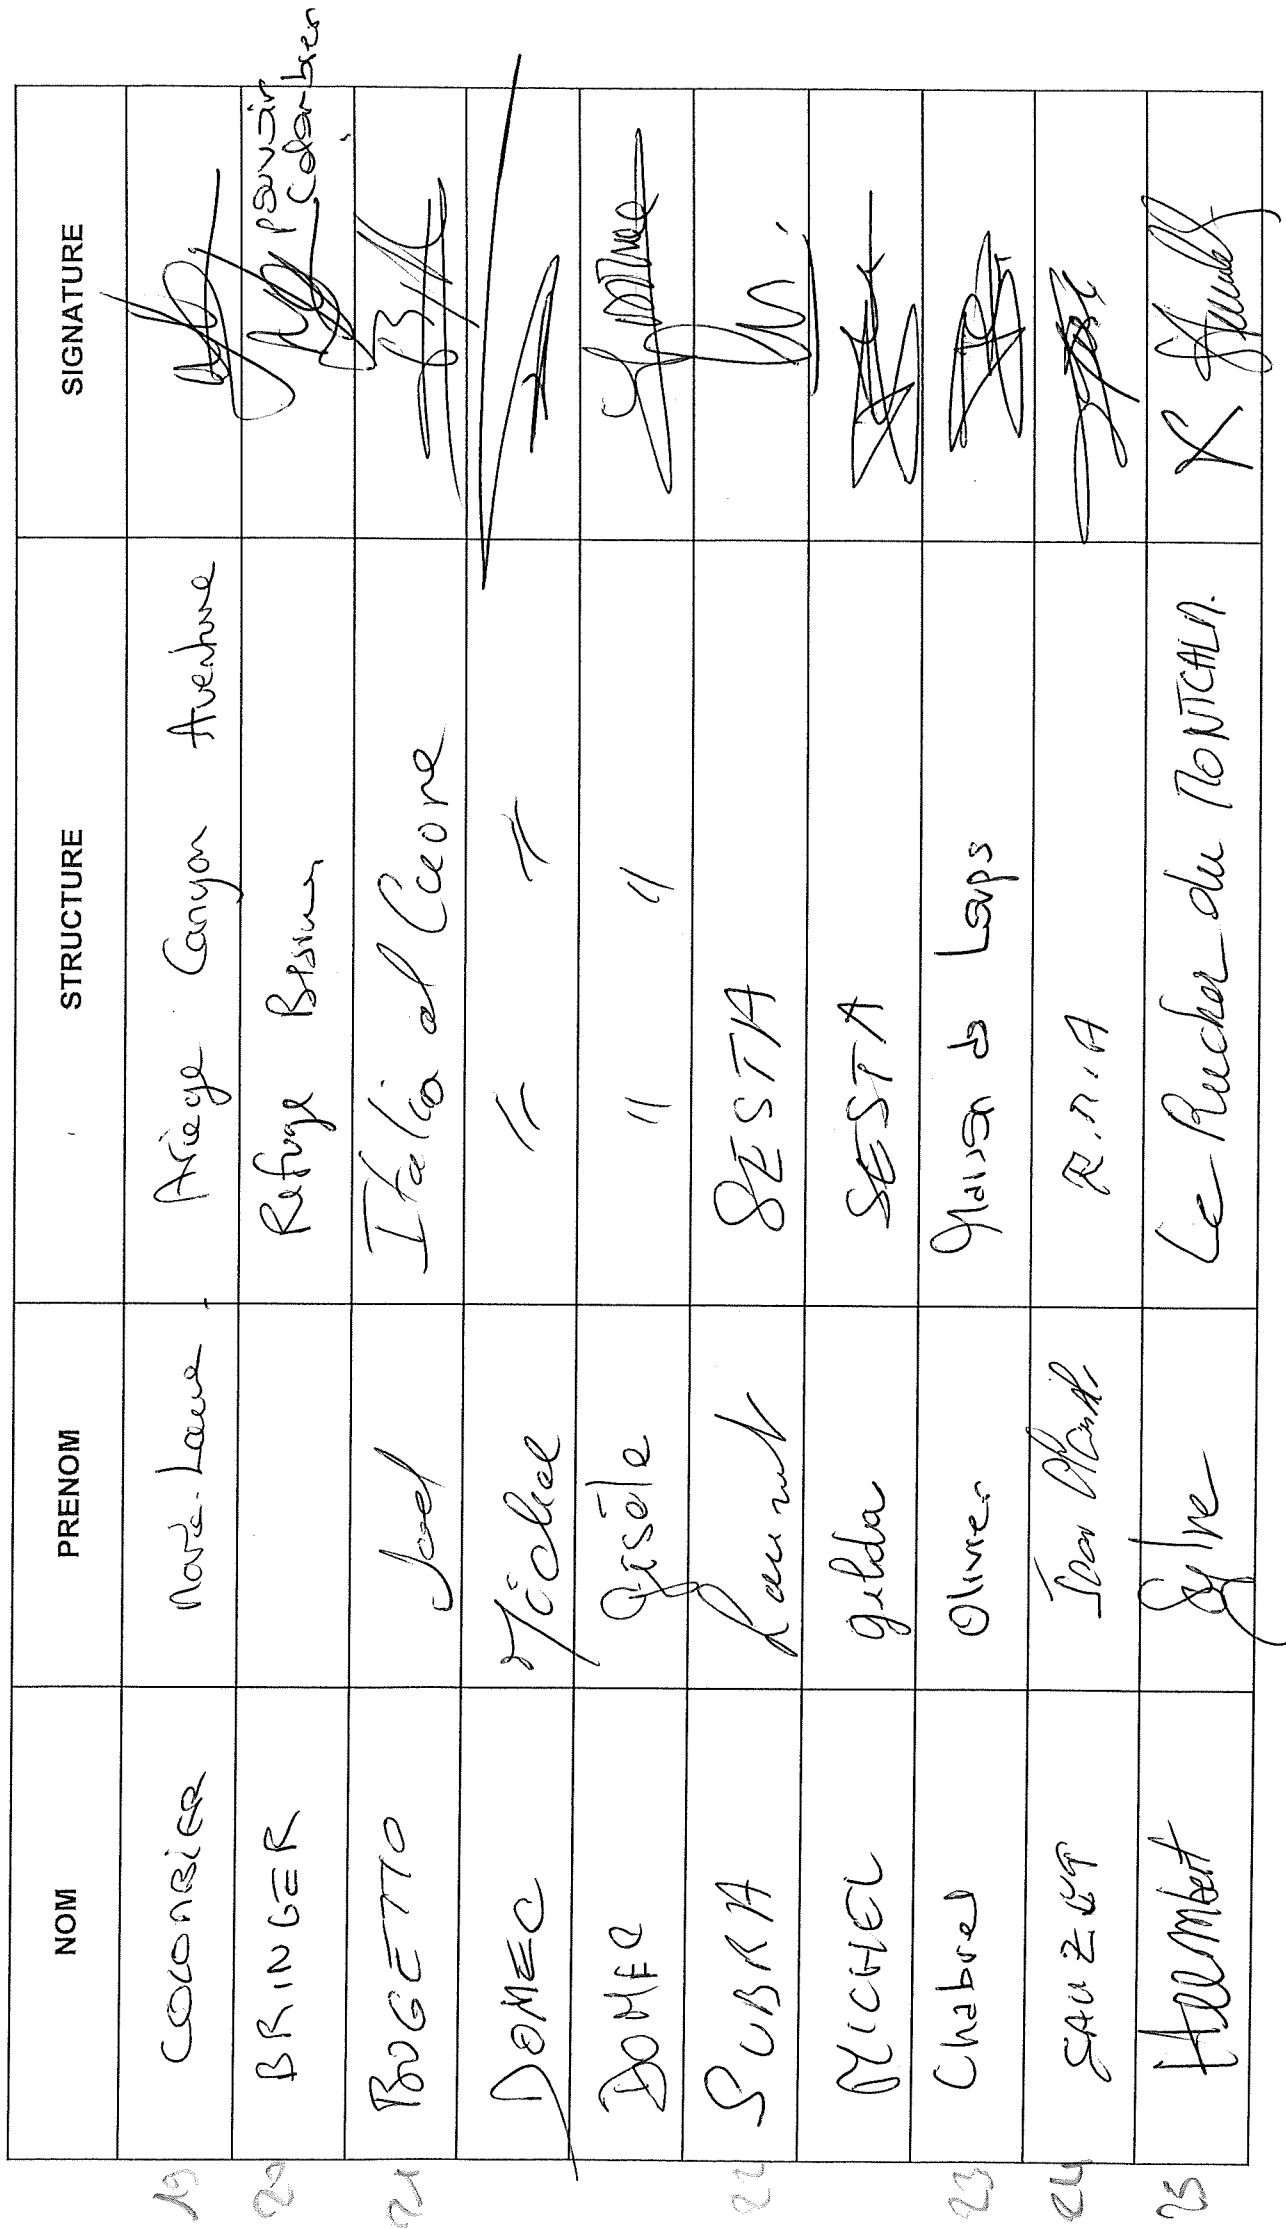 NOM PRENOM STRUCTURE SIGNATURE
19 COLOMBIER Marie-Laure Ariège Canyon Aventure
20 BRINGER Refuge pouvoir Colombier
21 BOGETTO Joel Italia al Cuore
DOMEC Michel " "
DOMEC Gisèle " "
22 SUBRA Laurent SESTA
MICHEL gilda SESTA
23 Chabrol Olivier Maison des Loups
24 SAUZET Jean Claude
25 Humbert Sylvie Le Rucher du MONTCALM.